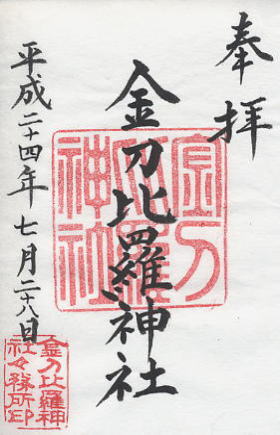 奉拝
金刀比羅神社
平成二十四年七月二十八日
金刀比羅神社
金刀比羅神
社々務所印